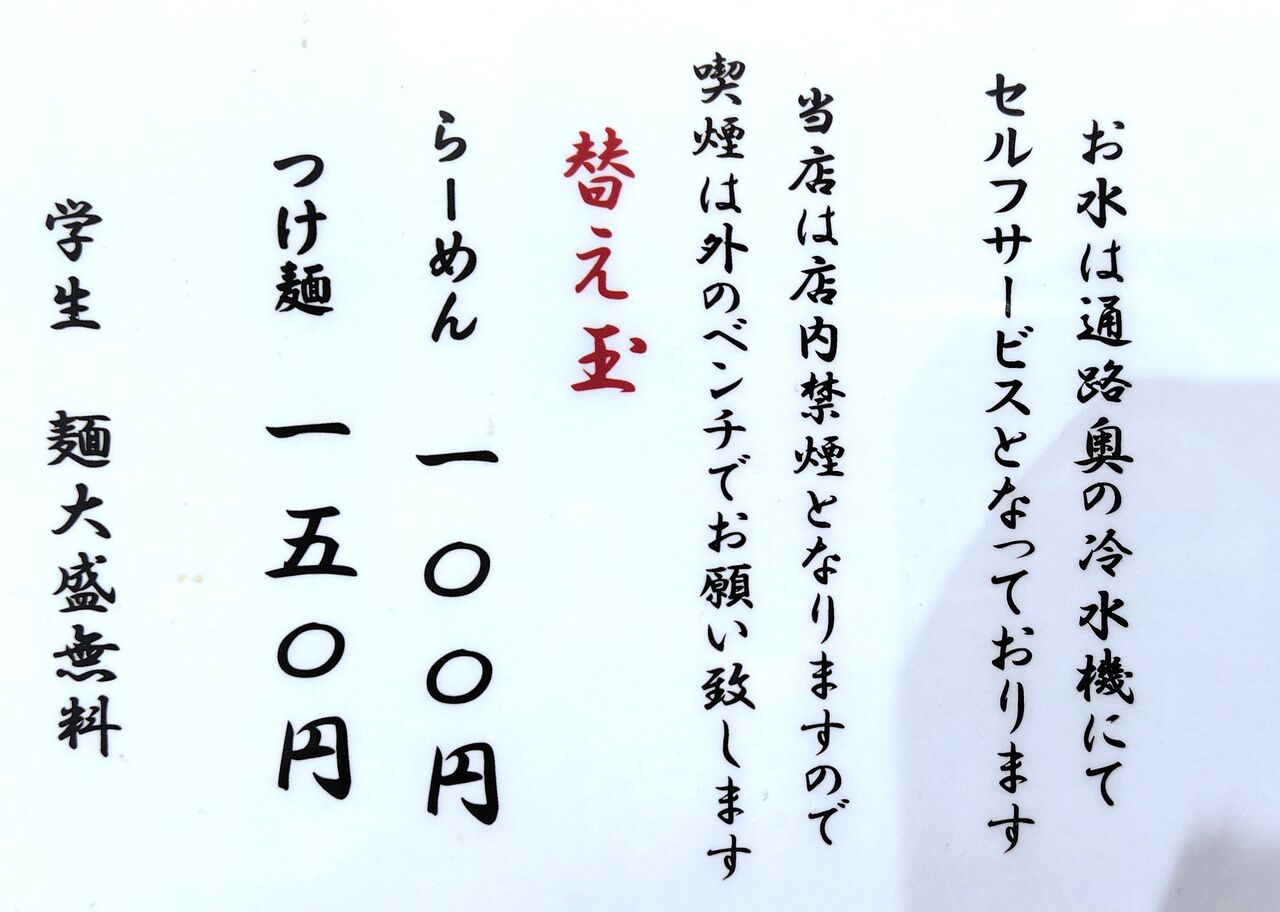 お水は通路奥の冷水機にて
セルフサービスとなっております
当店は店内禁煙となりますので
喫煙は外のベンチでお願い致します
替え玉
らーめん 一〇〇円
つけ麺 一五〇円
学生 麺大盛無料